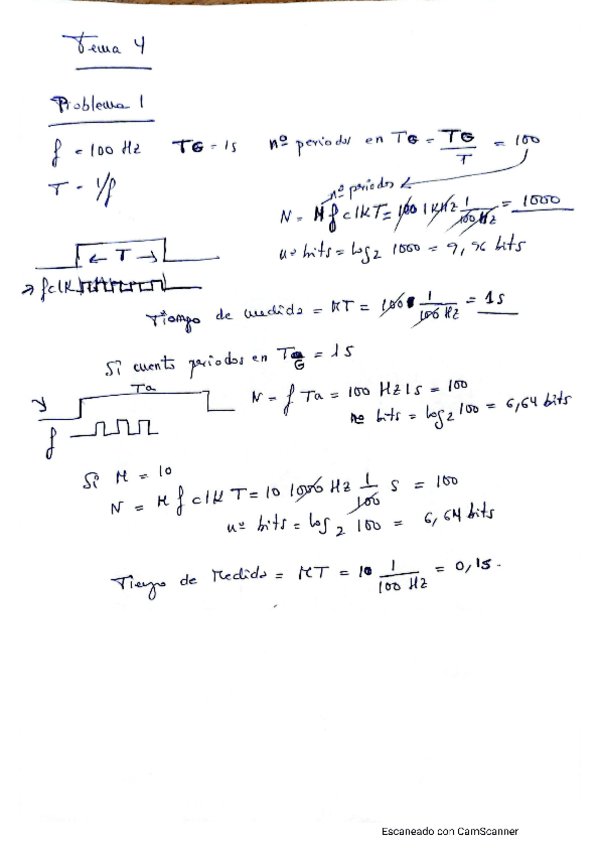 Tema 4
Problema 1
f = 100 Hz TG = 1s nº periodos en TG = TG/T = 100
T = 1/f
nº periodos
N = M f clk T = 100 1 KHz 1/100 Hz = 1000
nº bits = log2 1000 = 9,96 bits
← T →
→ fclk
Tiempo de medida = MT = 100 1/100 Hz = 1s
Si cuento periodos en TG = 1s
Ta
N = f Ta = 100 Hz 1s = 100
nº bits = log2 100 = 6,64 bits
f
Si M = 10
N = M f clk T = 10 1000 Hz 1/100 s = 100
nº bits = log2 100 = 6,64 bits
Tiempo de Medida = MT = 10 1/100 Hz = 0,1s.
Escaneado con CamScanner